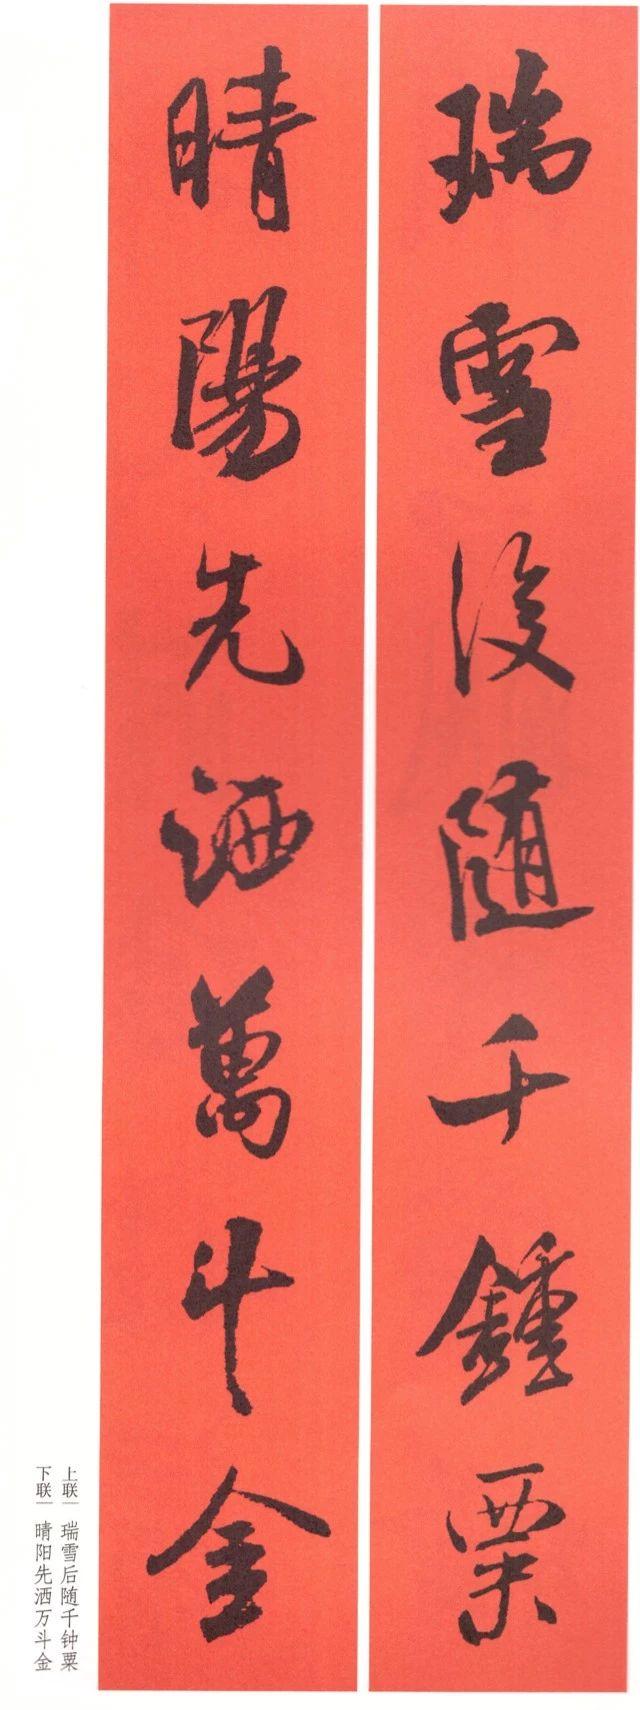 瑞雪後随千鍾粟
晴陽先洒萬斗金
上联 瑞雪后随千钟粟
下联 晴阳先洒万斗金